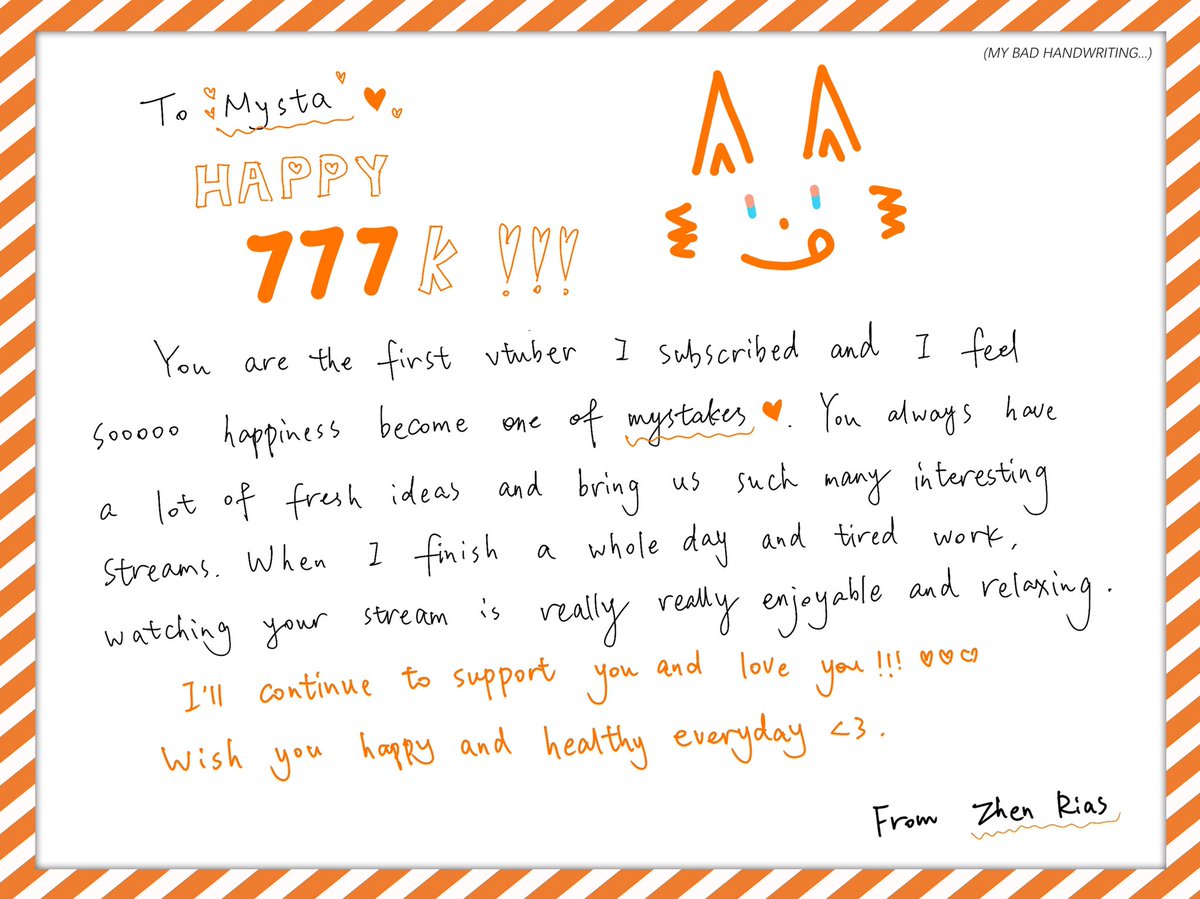 (MY BAD HANDWRITING...)
To Mysta
HAPPY
777k !!!
You are the first vtuber I subscribed and I feel
sooooo happiness become one of mystakes ♥. You always have
a lot of fresh ideas and bring us such many interesting
streams. When I finish a whole day and tired work,
watching your stream is really really enjoyable and relaxing.
I'll continue to support you and love you!!! ♡♡♡
Wish you happy and healthy everyday <3.
From Zhen Rias